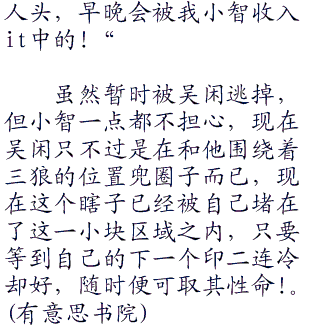 人头，早晚会被我小智收入
it中的！“
虽然暂时被吴闲逃掉，
但小智一点都不担心，现在
吴闲只不过是在和他围绕着
三狼的位置兜圈子而已，现
在这个瞎子已经被自己堵在
了这一小块区域之内，只要
等到自己的下一个印二连冷
却好，随时便可取其性命！。
(有意思书院)